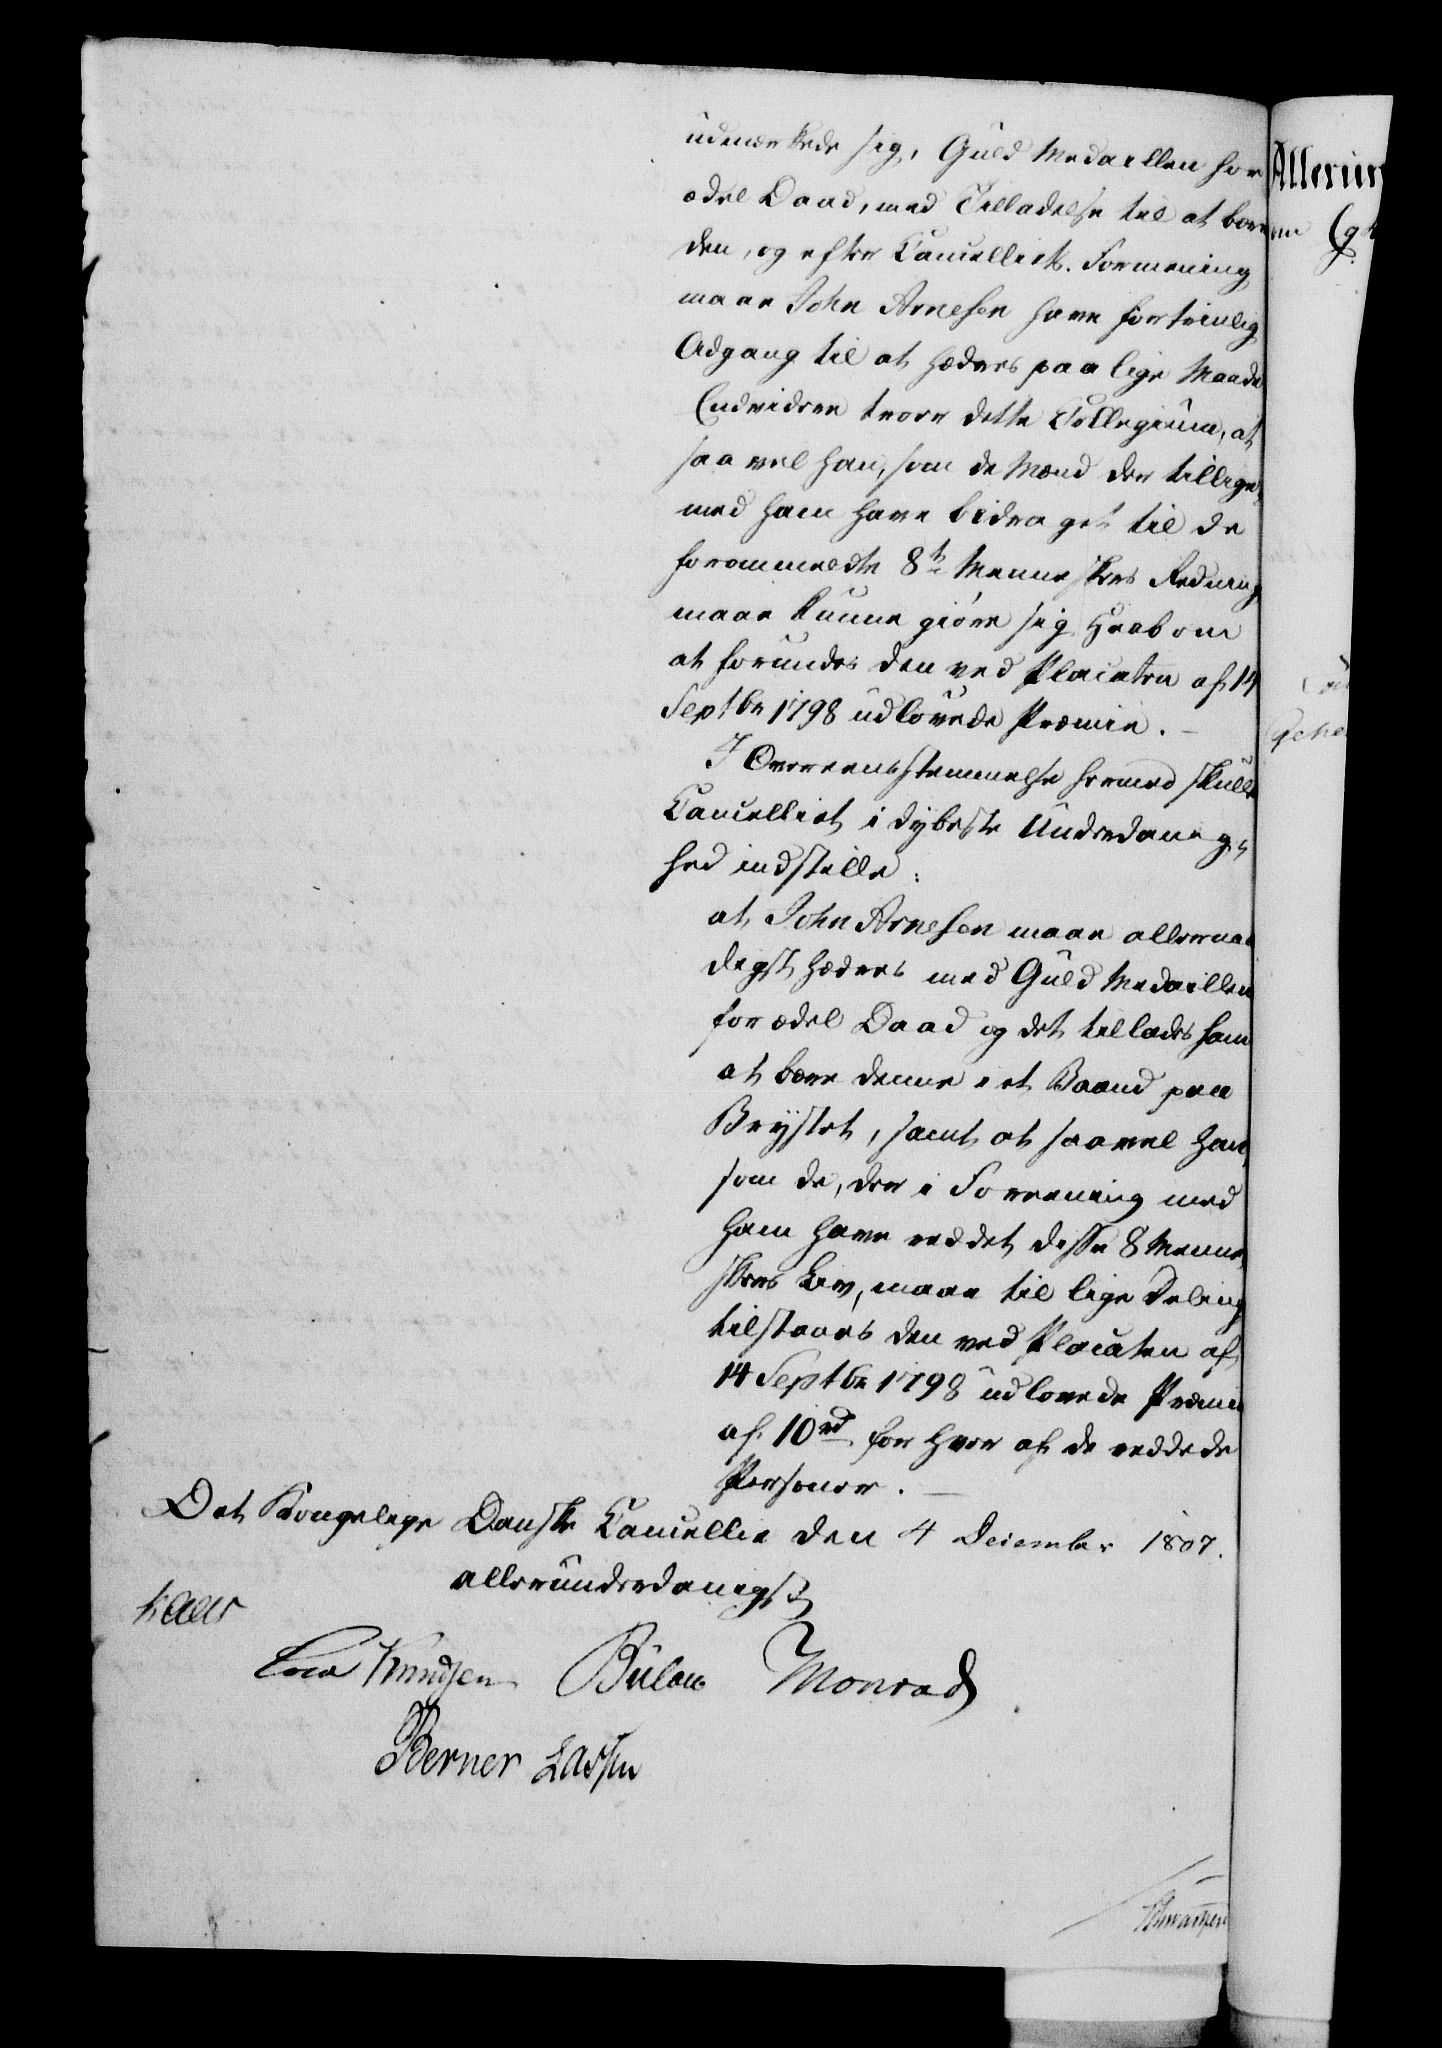 udmærkede sig, Guld Medaillen for
ædel Daad, med Tilladelse til at bære
den, og efter Cancelliets Formening
maae John Arnesen have fortrinlig
Adgang til at hædres paa lige Maade
Endvidere troer dette Collegium, at
saavel han, som de Mænd der tillige
med ham have bidraget til de
forommeldte 8te Menneskers Redning
maae kunne giøre sig Haab om
at forundes den ved Placaten af 14
Septbr 1798 udlovede Præmie. —
I Overeensstemmelse hermed skulle
Cancelliet i dybeste Underdanig-
hed indstille:
at John Arnesen maae allernaa
digst hædres med Guld Medaillen
for ædel Daad og det tillades ham
at bære denne i et Baand paa
Brystet, samt at saavel han
som de, der i Forening med
ham have reddet disse 8 Menne
skers Liv, maae til lige Deling
tilstaaes den ved Placaten af
14 Septbr 1798 udlovede Præmie
af 10 rd for hver af de reddede
Personer. —
Det Kongelige Danske Cancellie den 4 December 1807.
allerunderdanigst
Kaas
Knudsen Bülow Monrad
Berner Lassen
Allerun